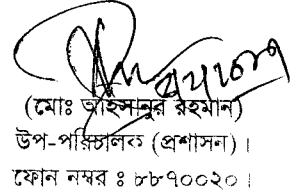 (মোঃ আহসানুর রহমান)
উপ-পরিচালক (প্রশাসন)।
ফোন নম্বর ঃ ৮৮৭০০২০।